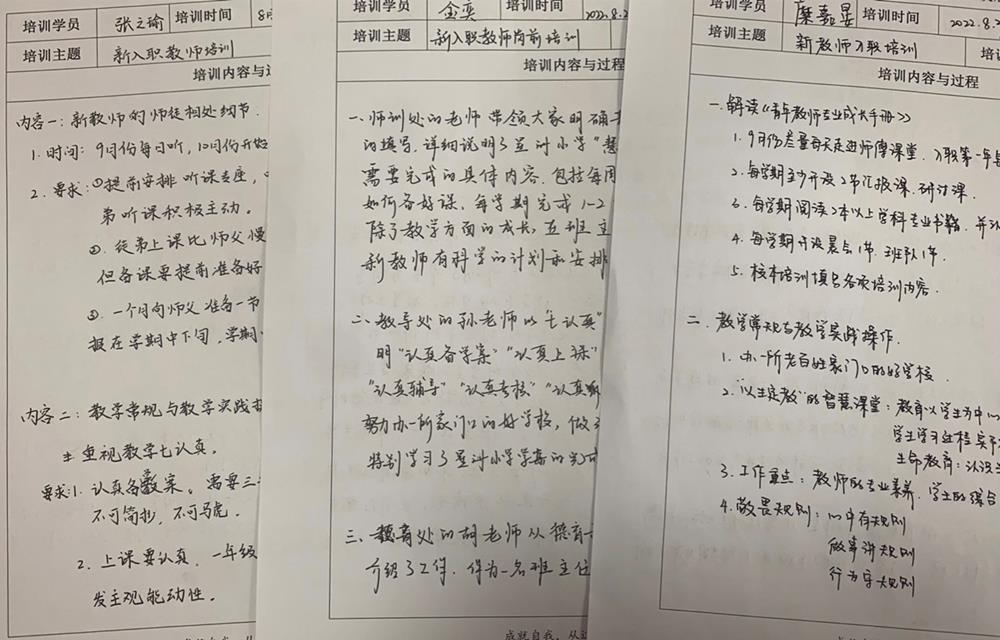 培训学员 张之瑜 培训时间 8月
培训主题 新入职教师培训
培训内容与过
内容一：新教师的师徒相处细节.
1. 时间：9月份每日听，10月份开始
2. 要求：①提前安排听课专座，
弟听课积极主动。
②. 徒弟上课比师父慢
但备课要提前准备好
③. 一个月向师父准备一节
报在学期中下旬，学期
内容二：教学常规与教学实践
重视教学七认真。
要求:1. 认真备教案。需要三
不可简抄，不可马虎.
2. 上课要认真. 一年级
发主观能动性。
培训学员 金奕 培训时间 2022.8.2
培训主题 新入职教师岗前培训
培训内容与过程
一、师训处的老师带领大家明确
的填写，详细说明了星讨小学“慧
需要完成的具体内容. 包括每周
如何备好课. 每学期完成1-2
除了教学方面的成长，五班主
新教师有科学的计划和安排
二、教导处的孙老师以“七认真”
明“认真备学案”“认真上课”
“认真辅导”“认真考核”“认真
努力办一所家门口的好学校，做
特别学习了星讨小学学案的完成
三、德育处的胡老师从德育
介绍了工作. 作为一名班主任
成就自我，从这
培训学员 糜嘉晏 培训时间 2022.8.2
培训主题 新教师入职培训 培训
培训内容与过程
一. 解读《青年教师专业成长手册》
1. 9月份尽量每天走进师傅课堂. 入职第一年每
2. 每学期至少开设2节汇报课. 研讨课.
3. 每学期阅读2本以上学科专业书籍. 并认
4. 每学期开设晨会1节. 班队1节.
5. 校本培训填写各项培训内容.
二. 教学常规与教学实践操作.
1. 办一所老百姓家门口的好学校.
2. “以生定教”的智慧课堂：教育以学生为中心
学生学习过程实
生命教育：认识
3. 工作重点：教师的专业素养. 学生的综合
4. 敬畏规则：心中有规则
做事讲规则
行为守规则